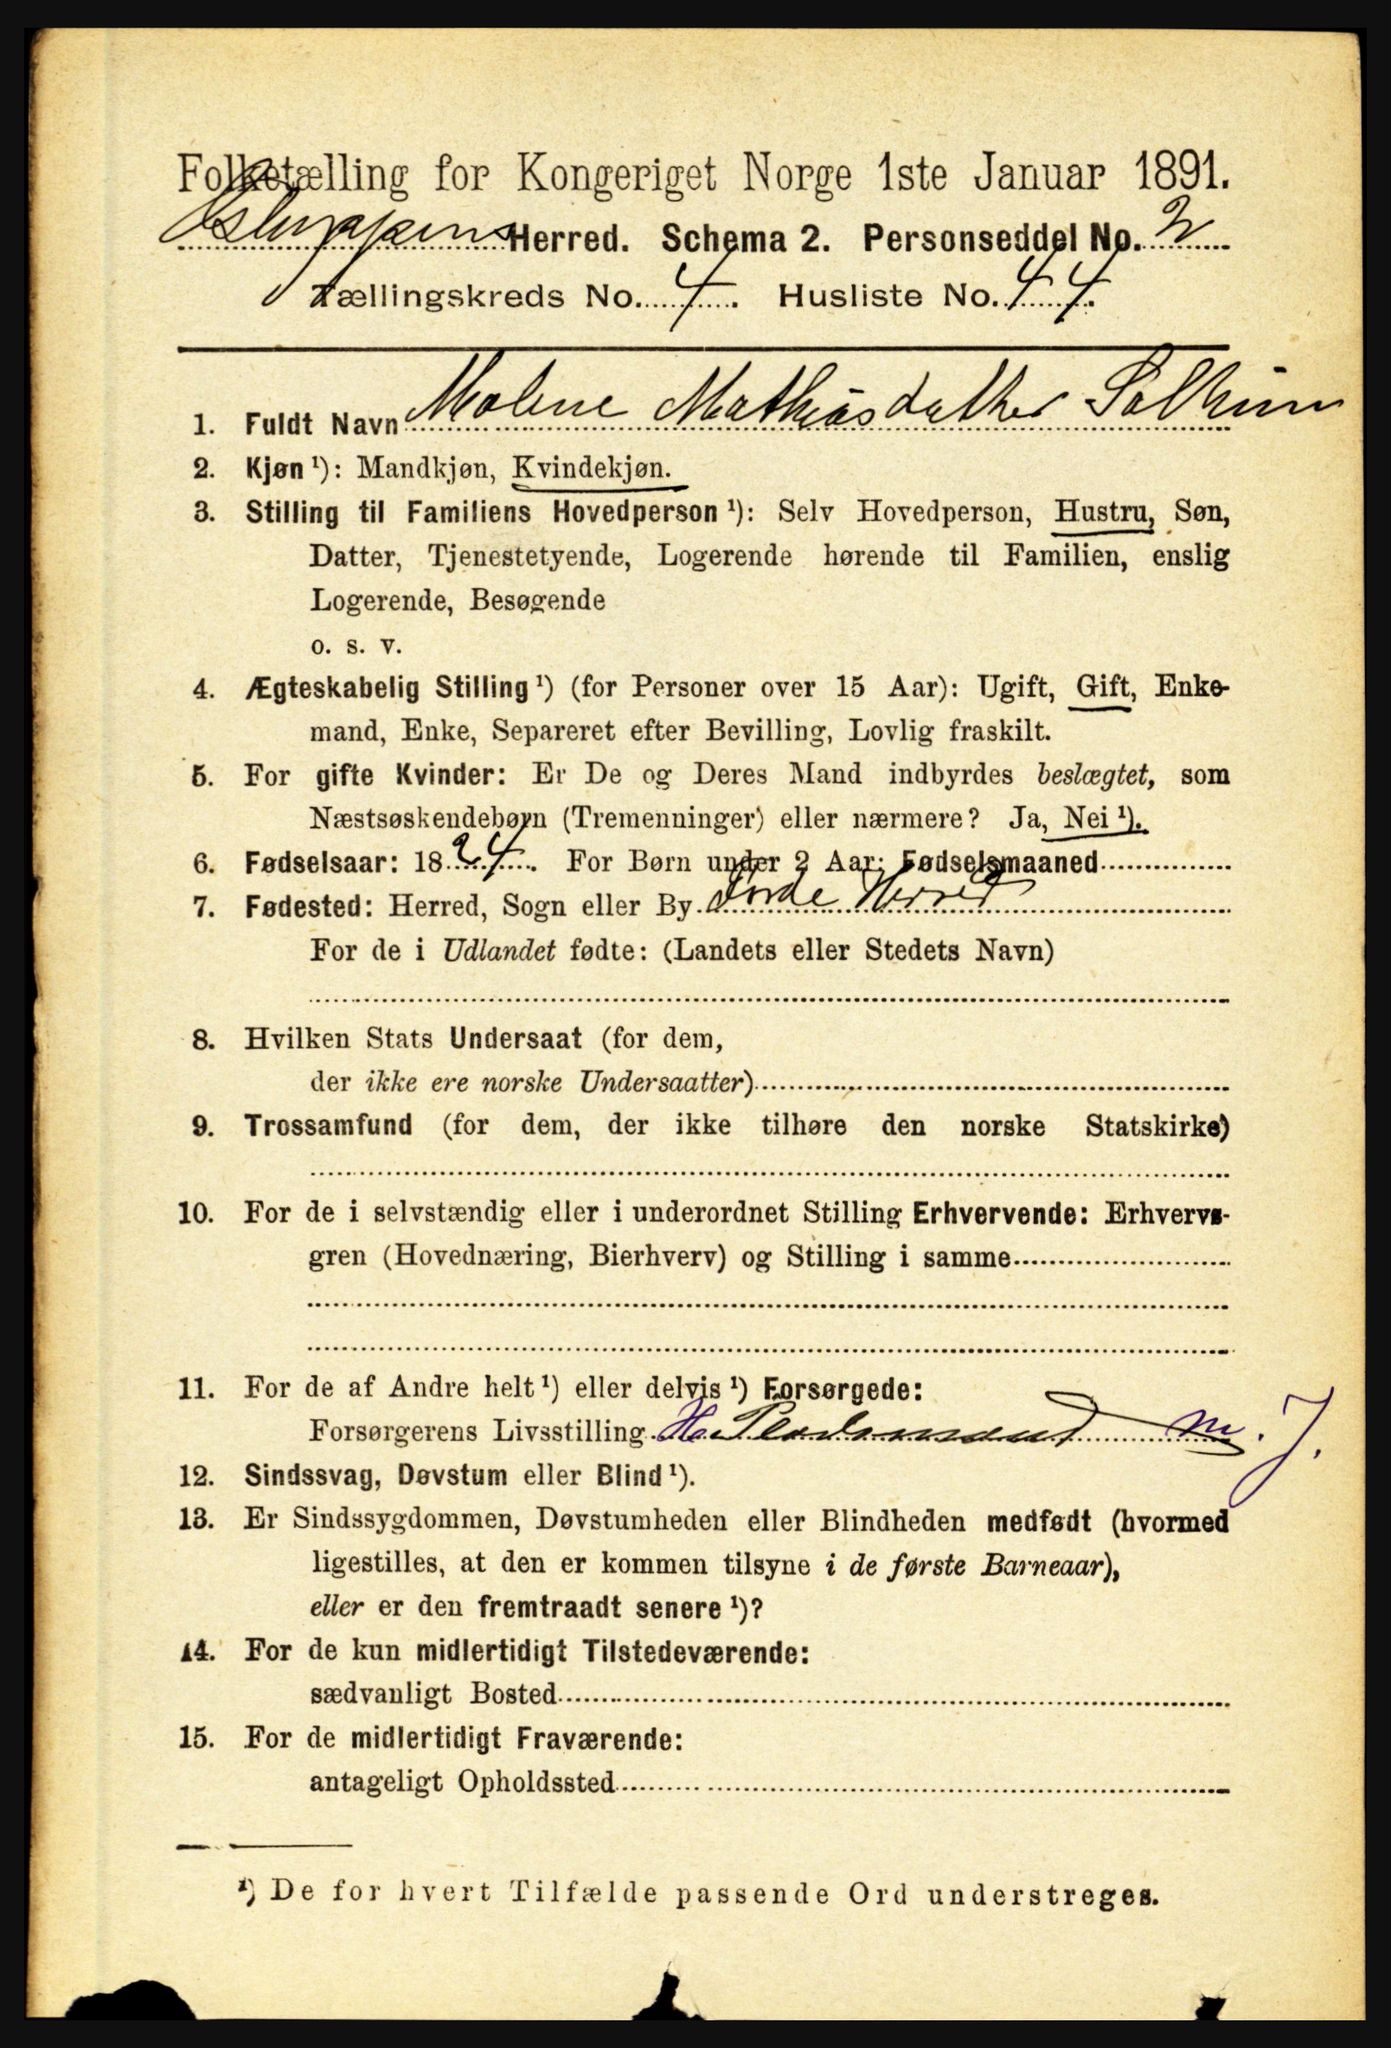 Folketælling for Kongeriget Norge 1ste Januar 1891.
Herred. Schema 2. Personseddel No. 2
Tællingskreds No. 4. Husliste No. 44.
1. Fuldt Navn Malene Mathiasdatter Solheim
2. Kjøn ¹): Mandkjøn, Kvindekjøn.
3. Stilling til Familiens Hovedperson ¹): Selv Hovedperson, Hustru, Søn,
Datter, Tjenestetyende, Logerende hørende til Familien, enslig
Logerende, Besøgende
o. s. v.
4. Ægteskabelig Stilling ¹) (for Personer over 15 Aar): Ugift, Gift, Enke-
mand, Enke, Separeret efter Bevilling, Lovlig fraskilt.
5. For gifte Kvinder: Er De og Deres Mand indbyrdes beslægtet, som
Næstsøskendebørn (Tremenninger) eller nærmere? Ja, Nei ¹).
6. Fødselsaar: 1824. For Børn under 2 Aar: Fødselsmaaned
7. Fødested: Herred, Sogn eller By Førde Herred
For de i Udlandet fødte: (Landets eller Stedets Navn)
8. Hvilken Stats Undersaat (for dem,
der ikke ere norske Undersaatter)
9. Trossamfund (for dem, der ikke tilhøre den norske Statskirke)
10. For de i selvstændig eller i underordnet Stilling Erhvervende: Erhvervs-
gren (Hovednæring, Bierhverv) og Stilling i samme
11. For de af Andre helt ¹) eller delvis ¹) Forsørgede:
Forsørgerens Livsstilling H. Pladsmand m. J.
12. Sindssvag, Døvstum eller Blind ¹).
13. Er Sindssygdommen, Døvstumheden eller Blindheden medfødt (hvormed
ligestilles, at den er kommen tilsyne i de første Barneaar),
eller er den fremtraadt senere ¹)?
14. For de kun midlertidigt Tilstedeværende:
sædvanligt Bosted
15. For de midlertidigt Fraværende:
antageligt Opholdssted
¹) De for hvert Tilfælde passende Ord understreges.